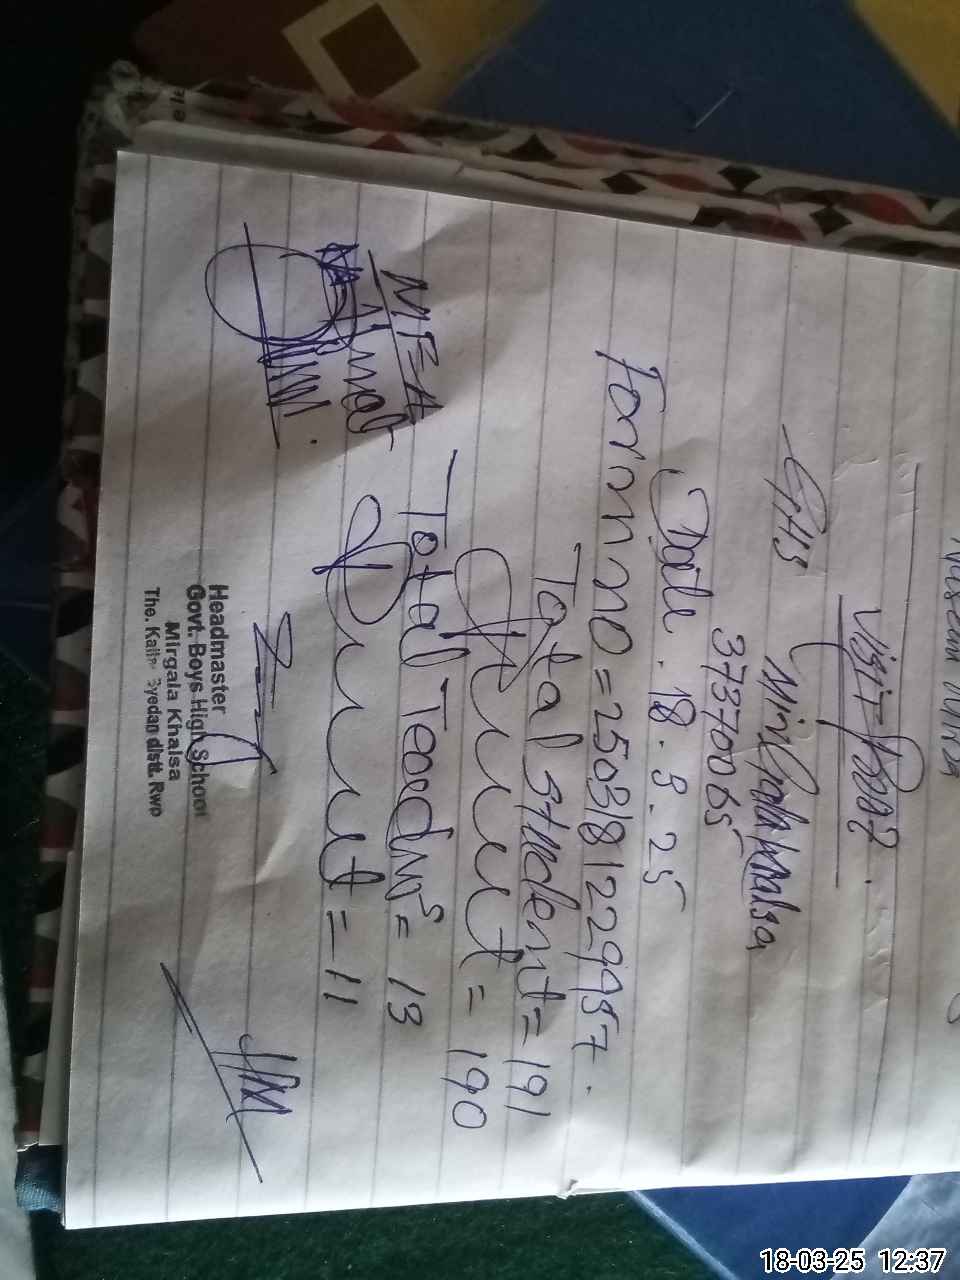 Visit Proof
GHS Mirgala Khalsa
37370065
Date. 18.3.25
Form no = 2503181229957.
Total student = 191
Present = 190
Total Teachers = 13
Present = 11
MEA
HM
Headmaster
Govt. Boys High School
Mirgala Khalsa
The. Kaller Syedan distt. Rwp
18-03-25 12:37